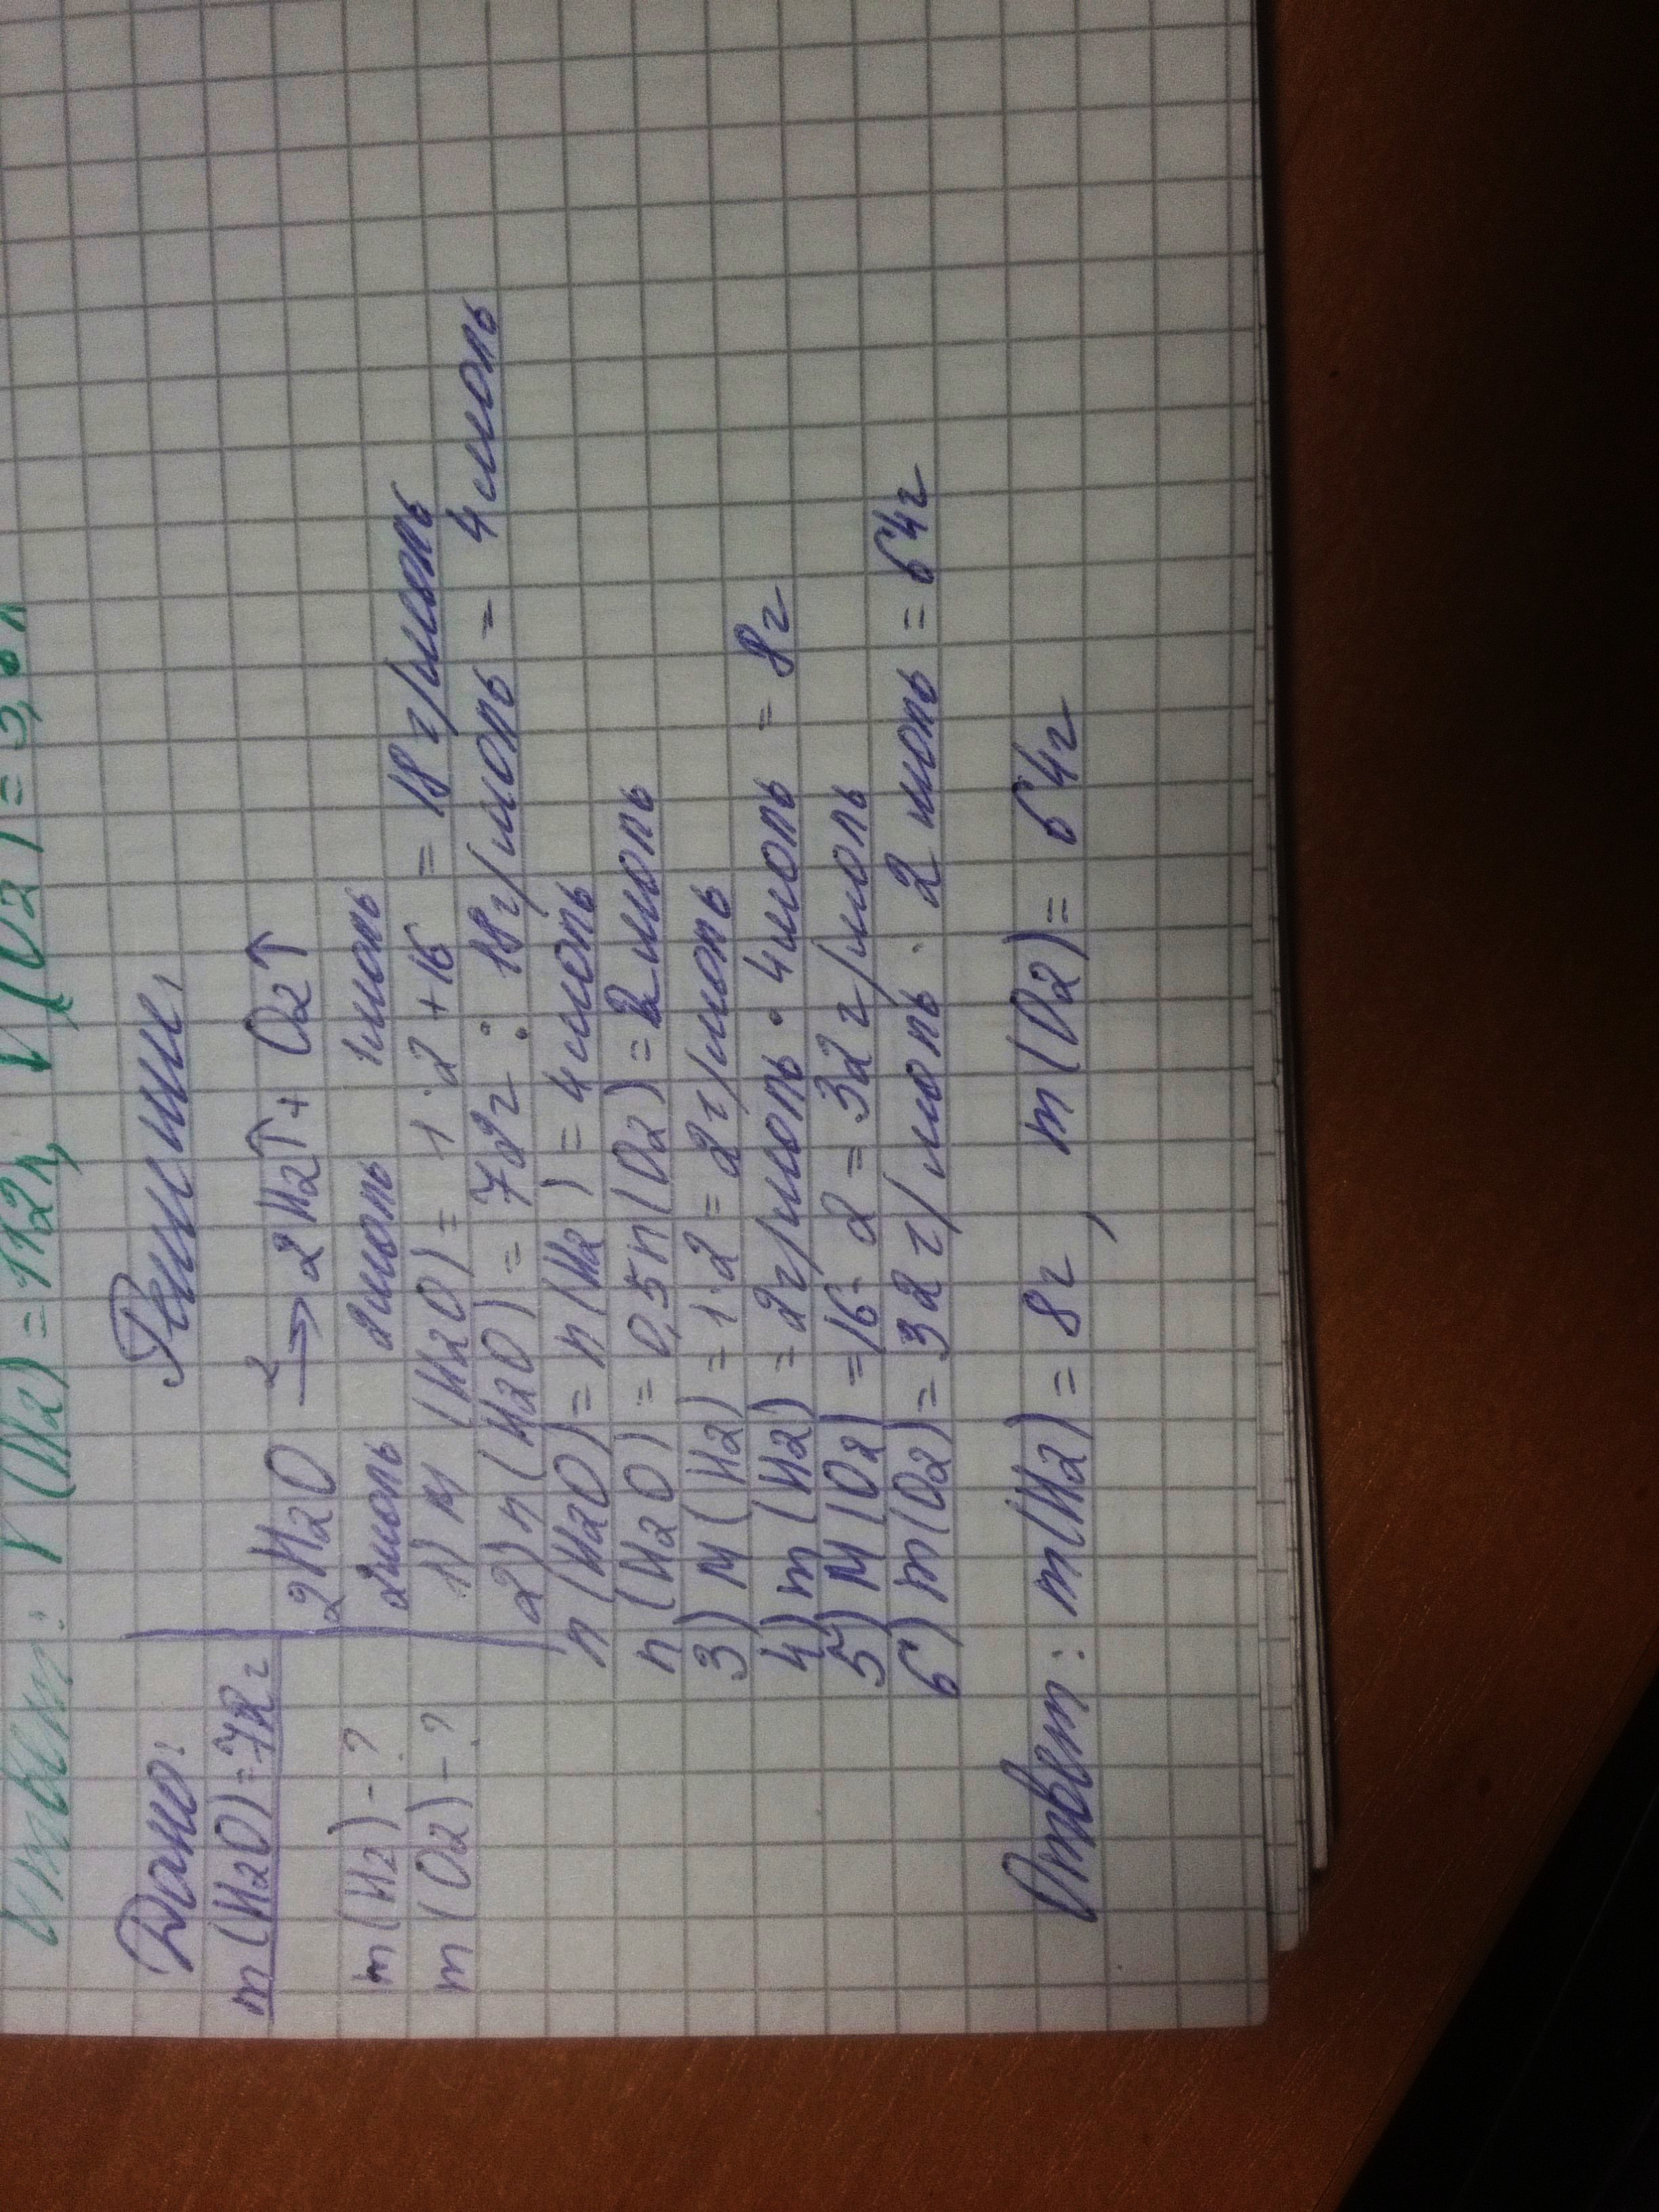 Ответ: V(H2) = 112л, V(O2) = 5,6л
Дано: Решение,
m(H2O)=72г 2H2O → 2H2↑ + O2↑
m(H2)-? 2моль 2моль 1моль
m(O2)-? 1) M (H2O) = 1·2+16 = 18 г/моль
2) n (H2O) = 72г : 18г/моль = 4 моль
n (H2O) = n (H2) = 4 моль
n (H2O) = 0,5n(O2) = 2 моль
3) M (H2) = 1·2 = 2г/моль
4) m (H2) = 2г/моль · 4моль = 8г
5) M (O2) =16·2 = 32 г/моль
6) m(O2) = 32 г/моль · 2 моль = 64г
Ответ: m(H2) = 8г, m(O2) = 64г